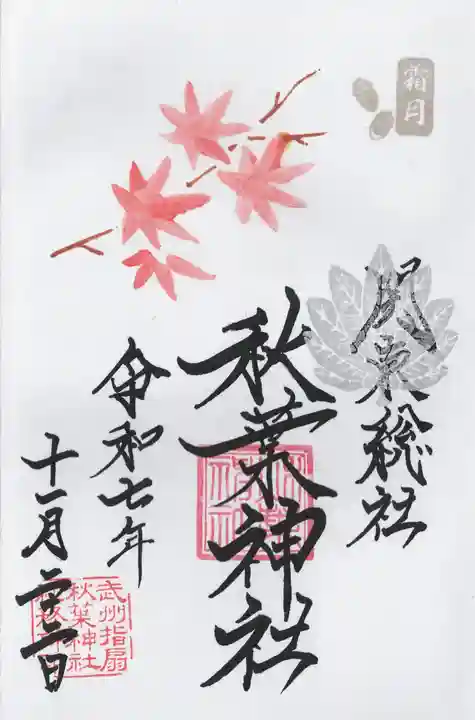 霜月
関東総社
秋葉神社
令和七年
十一月二十二日
武州指扇
秋葉神社